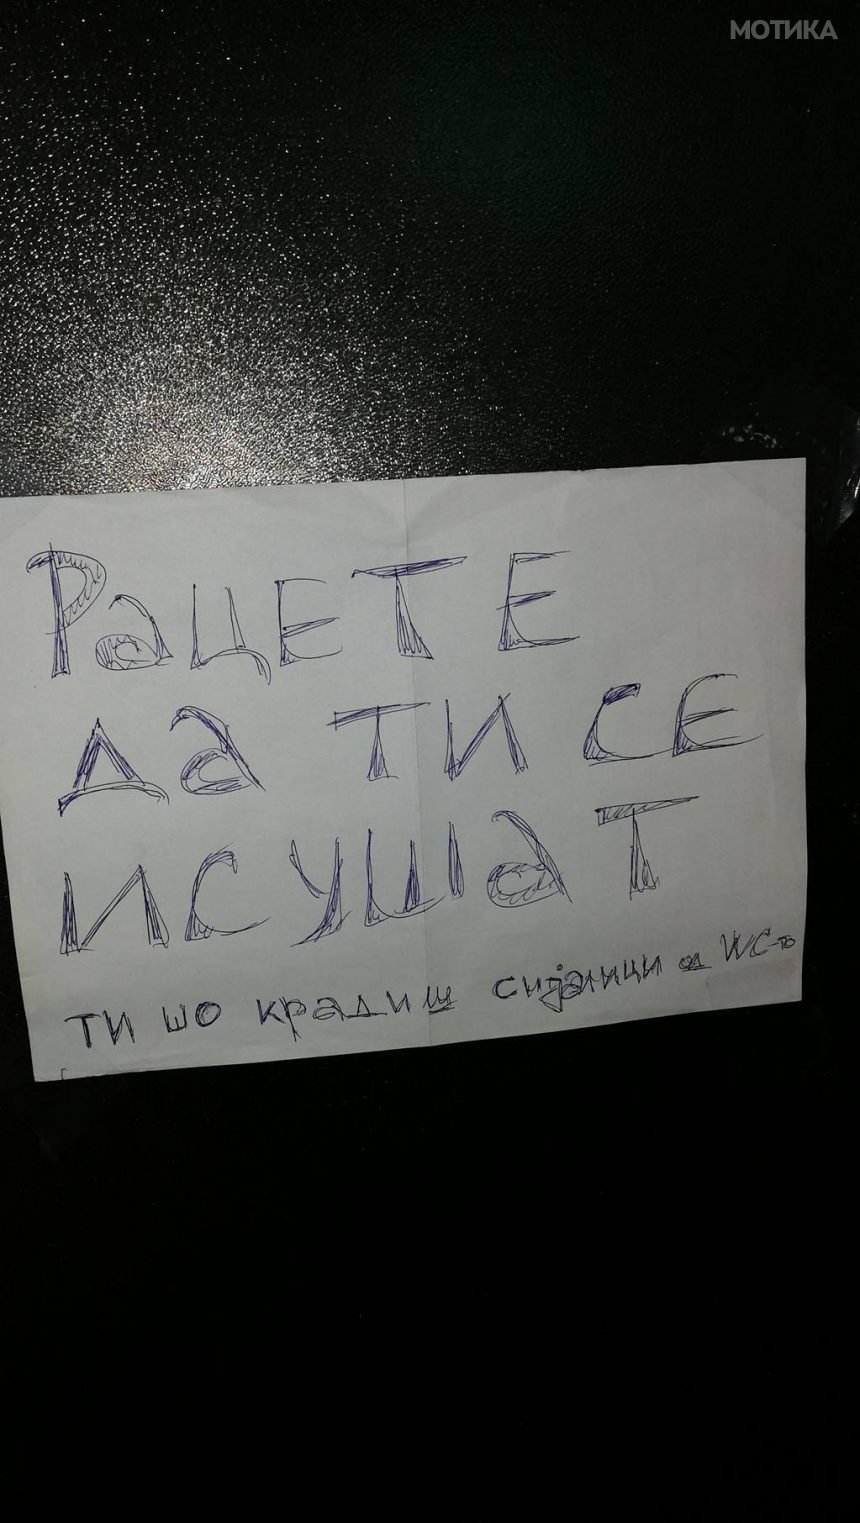 МОТИКА
РаЦЕТЕ
Да ТИ СЕ
ИСУШаТ
ти шо крадиш сијалици од WC-то